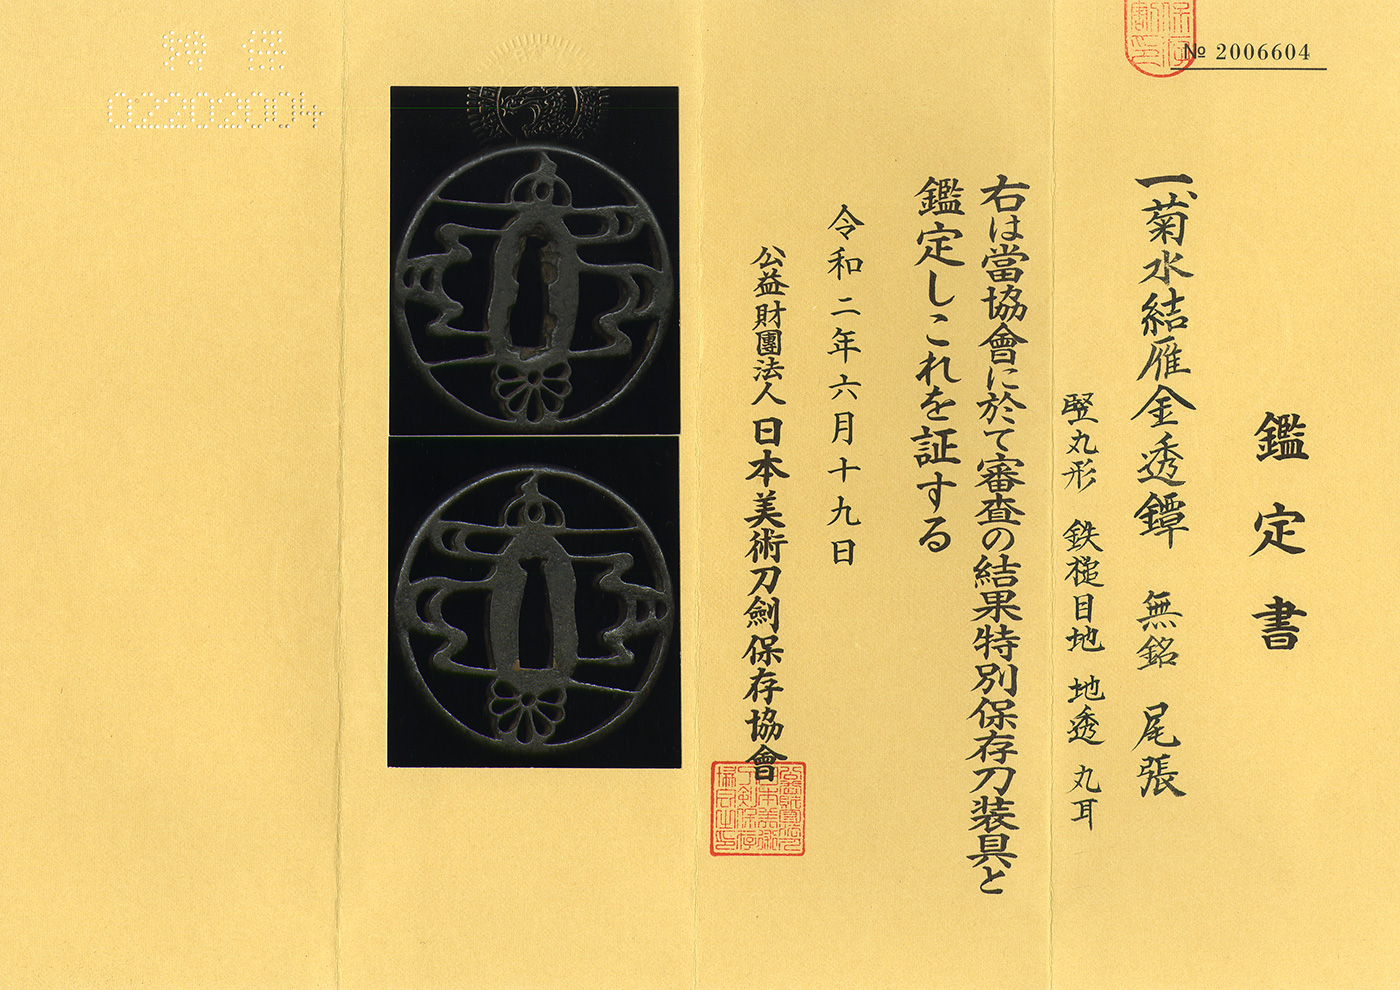 № 2006604
鑑定書
一、菊水結雁金透鐔 無銘 尾張
竪丸形 鉄槌目地 地透 丸耳
右は當協會に於て審査の結果特別保存刀装具と
鑑定しこれを証する
令和二年六月十九日
公益財團法人 日本美術刀劍保存協會
特 保
02202004